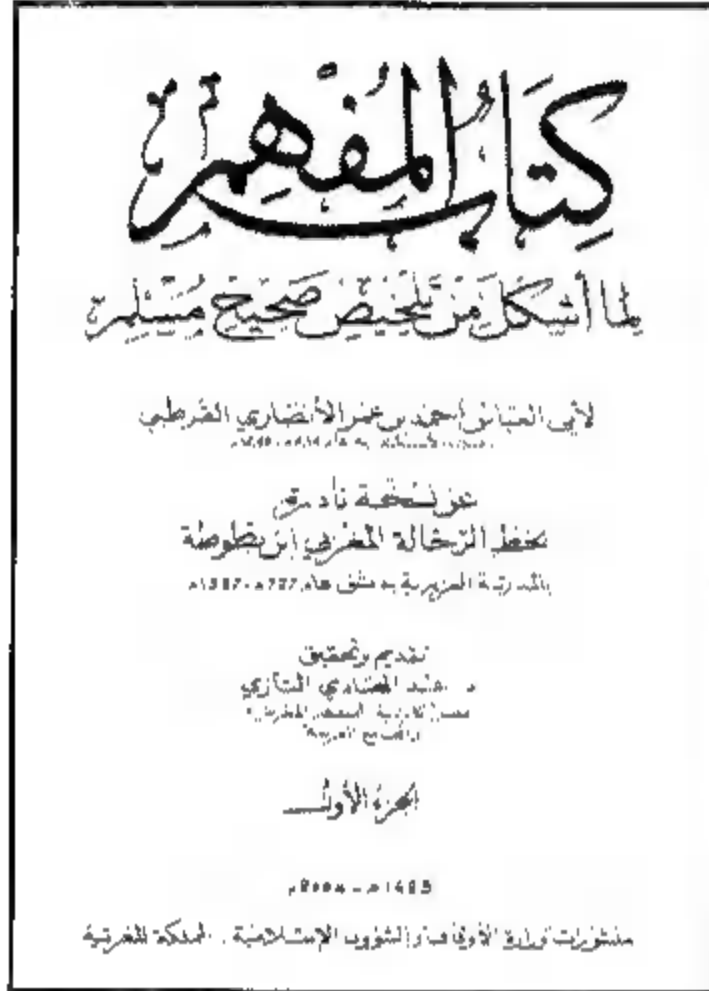 كتاب المفهم
لما أشكل من تلخيص صحيح مسلم
لأبي العباس أحمد بن عمر الأنصاري القرطبي
عن نسخة نادرة
بخط الرحالة المغربي ابن بطوطة
بالمدرسة العزيزية بدمشق عام 727هـ
تقديم وتحقيق
د. عبد الهادي التازي
عضو أكاديمية المملكة المغربية
والمجامع العربية
الجزء الأول
منشورات وزارة الأوقاف والشؤون الإسلامية . المملكة المغربية